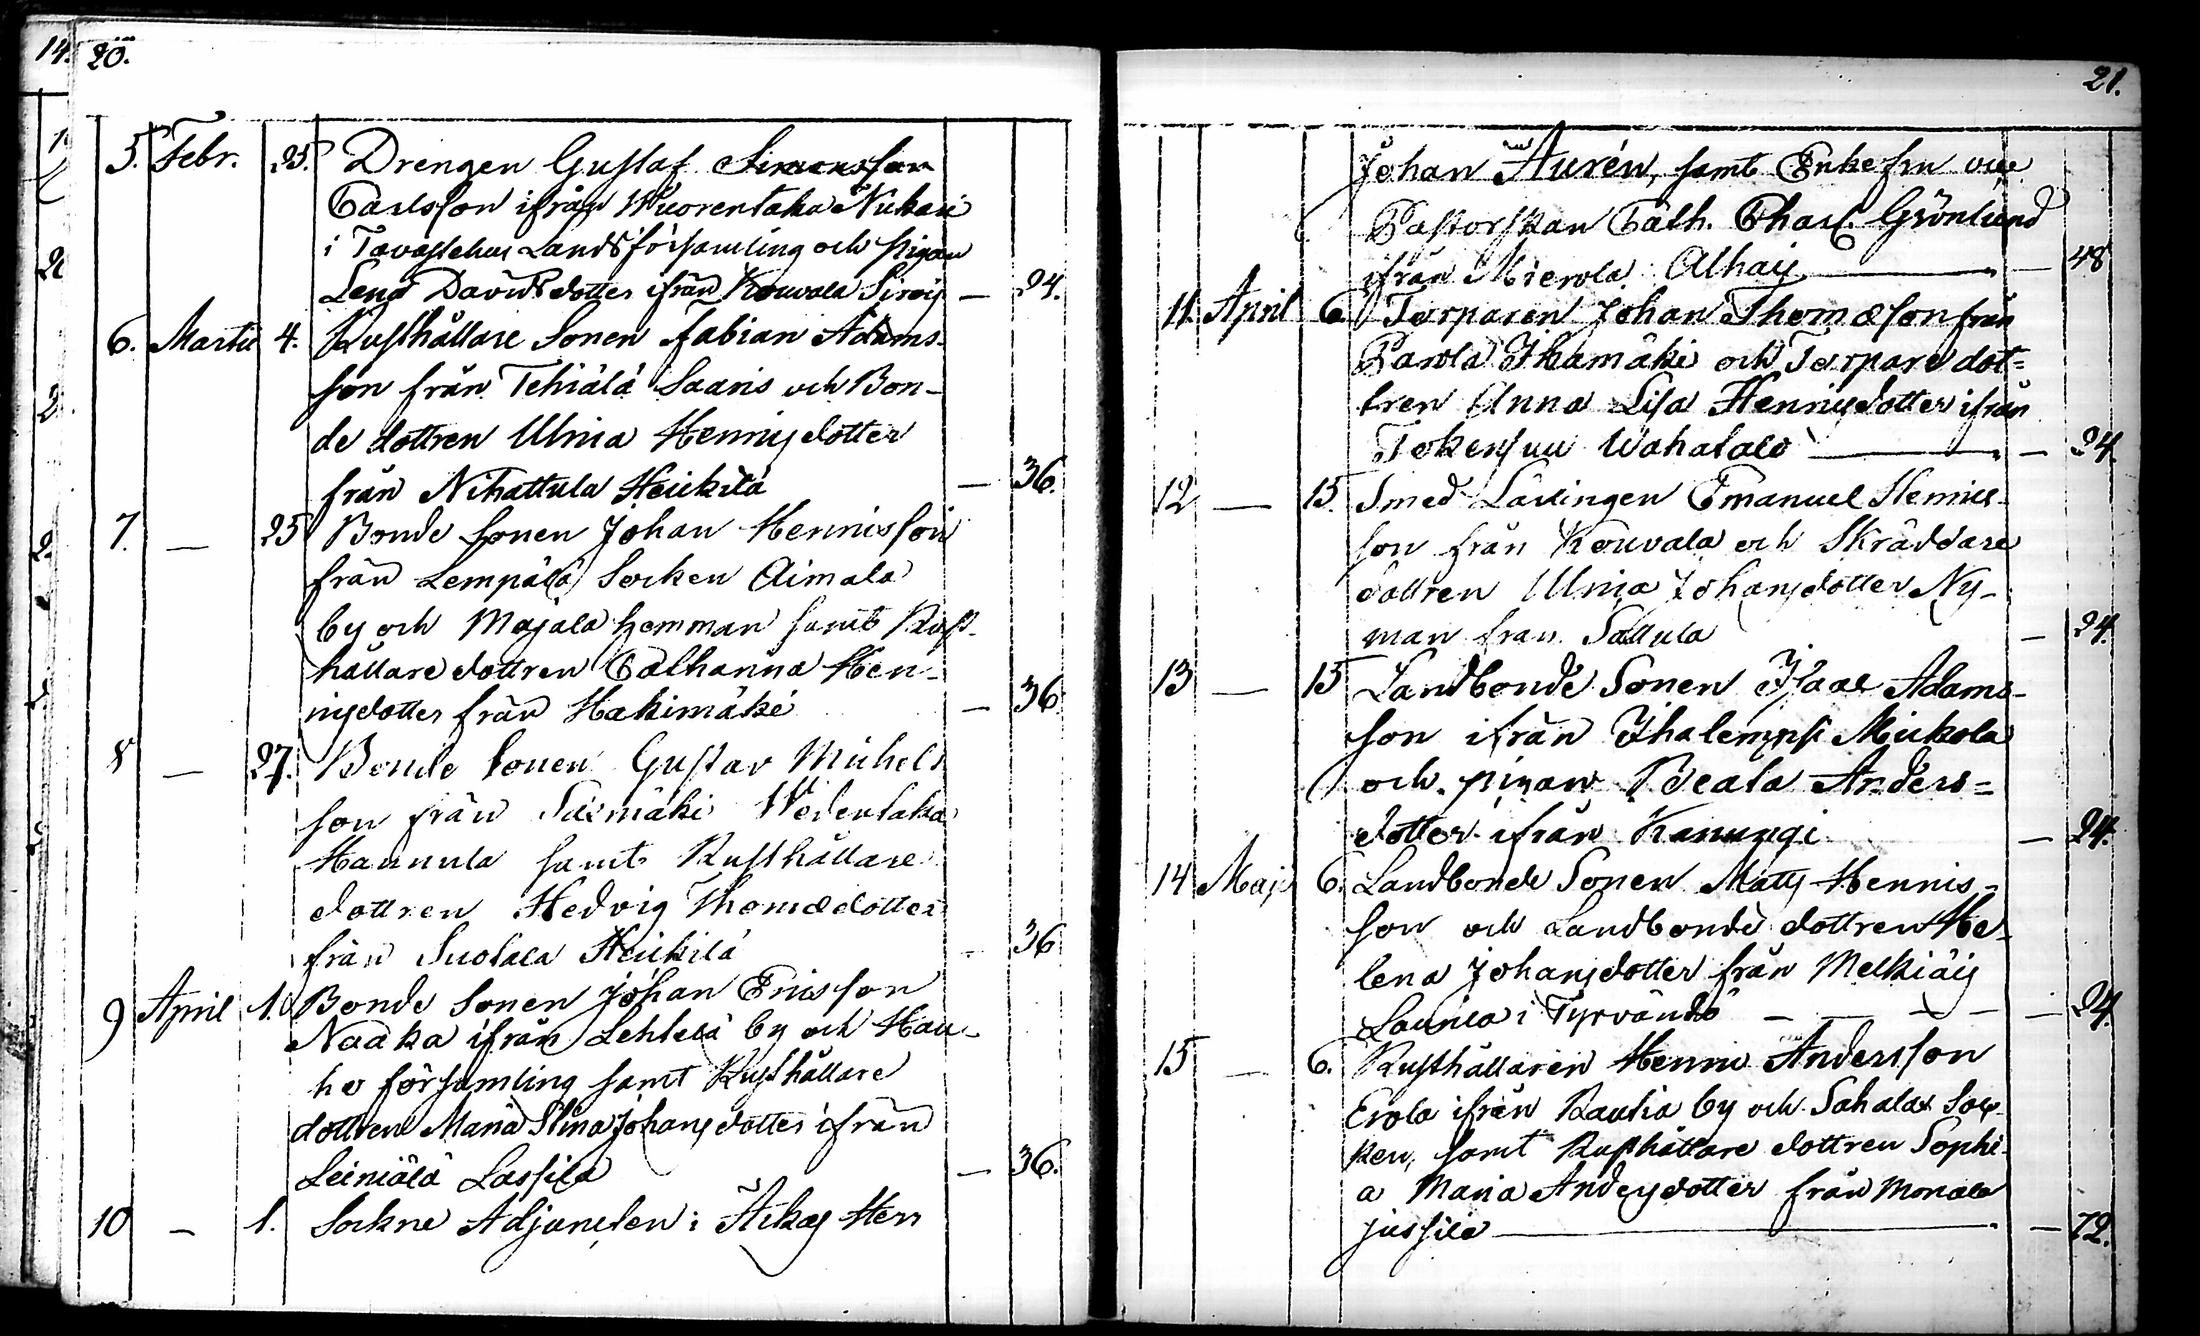 20.
5. Febr. 25. Drengen Gustaf Simonsson
Carlsson ifrån Wuorentaka Nukari
i Tavastehus Landsförsamling och pigan
Lena Davidsdotter ifrån Kouvala Siroij — 24.
6. Martii 4. Rusthållare Sonen Fabian Adams-
son från Tehiälä Saaris och Bon-
de dottren Ulrica Henricsdotter
från Nihattula Heickilä — 36.
7. — 25 Bonde sonen Johan Henricsson
från Lempälä Socken Aimala
by och Majala hemman samt Rust-
hållare dottren Catharina Hen-
ricsdotter från Hakimäki — 36
8 — 27. Bonde sonen Gustav Michels
son från Wedentaka
Hannula samt Rusthållare
dottren Hedvig Thomædotter
från Suotala Heickilä — 36
9 April 1. Bonde sonen Johan Ericsson
Naaka ifrån Lehtelä by och Hau-
ho församling samt Rusthållare
dottren Maria Stina Johansdotter ifrån
Leiniälä Lassila — 36.
10 — 1. Sockne Adjuncten i Herr
21.
Johan Aurén, samt Enkefru vice
Pastorskan Cath. Charl. Grönlund
ifrån Mierola — 48
11. April 6. Torparen Johan Thomæson från
Parola Ihamäki och Torpare dot-
tren Anna Lisa Henricsdotter ifrån
Wahatalo — 24.
12 — 15. Smed Lärlingen Emanuel Henric-
son från Kouvala och Skräddare
dottren Ulrica Johansdotter Ny-
man från Sattula — 24.
13 — 15 Landbonde Sonen Isaac Adams-
son ifrån Ihalempi Mickola
och pigan Beata Anders-
dotter ifrån Kanungi — 24.
14 Maji 6. Landbonde Sonen Matts Henrics-
son och Landbonde dottren He-
lena Johansdotter från Melkiäis
Laurila i Tyrväntö — 24.
15 — 6. Rusthållaren Henric Andersson
Erola ifrån Rautia by och Sahalax Soc-
ken, samt Rusthållare dottren Sophi-
a Maria Andersdotter från Monaala
Jussila — 72.